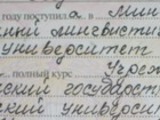 году поступила в Мин
нный лингвистич
университет
... полный курс Учреж
ский государст
ский универси